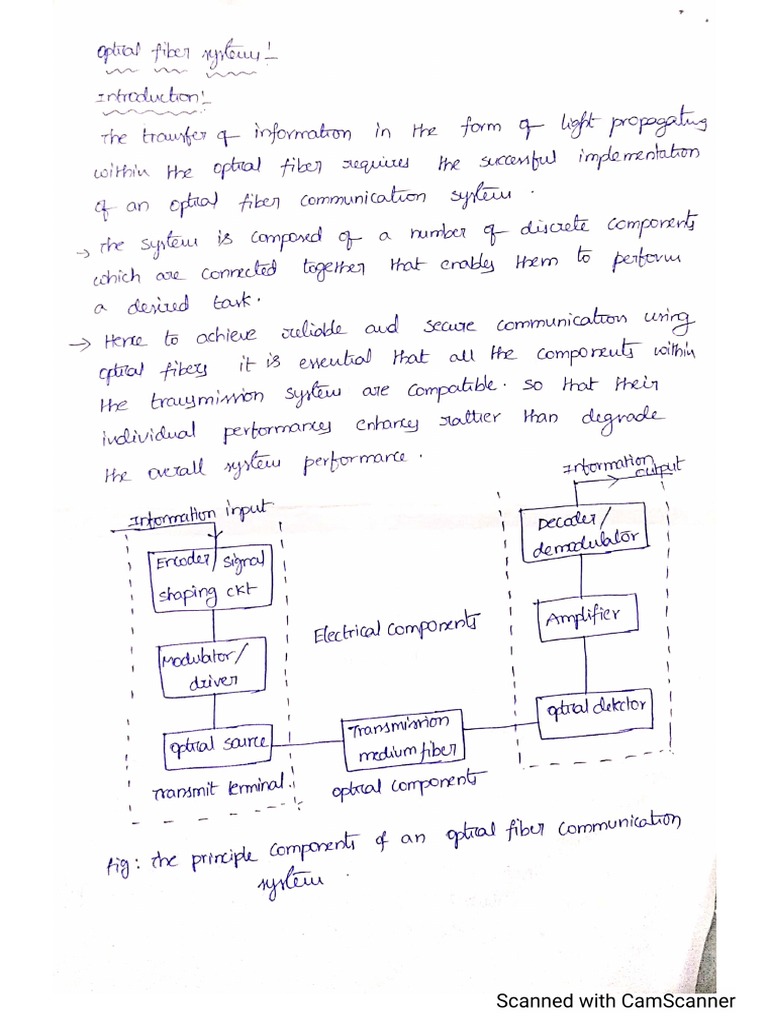 Optical fiber systems:-
Introduction:-
The transfer of information in the form of light propagating
within the optical fiber requires the successful implementation
of an optical fiber communication system.
→ The system is composed of a number of discrete components
which are connected together that enables them to perform
a desired task.
→ Hence to achieve reliable and secure communication using
optical fibers it is essential that all the components within
the transmission system are compatible. so that their
individual performances enhances rather than degrade
the overall system performance.
Information input
Encoder/signal
shaping ckt
Modulator/
driver
Optical source
Transmit terminal.
Electrical components
Transmission
medium fiber
optical components
Information
output
Decoder/
demodulator
Amplifier
Optical detector
fig: The principle components of an optical fiber communication
system.
Scanned with CamScanner